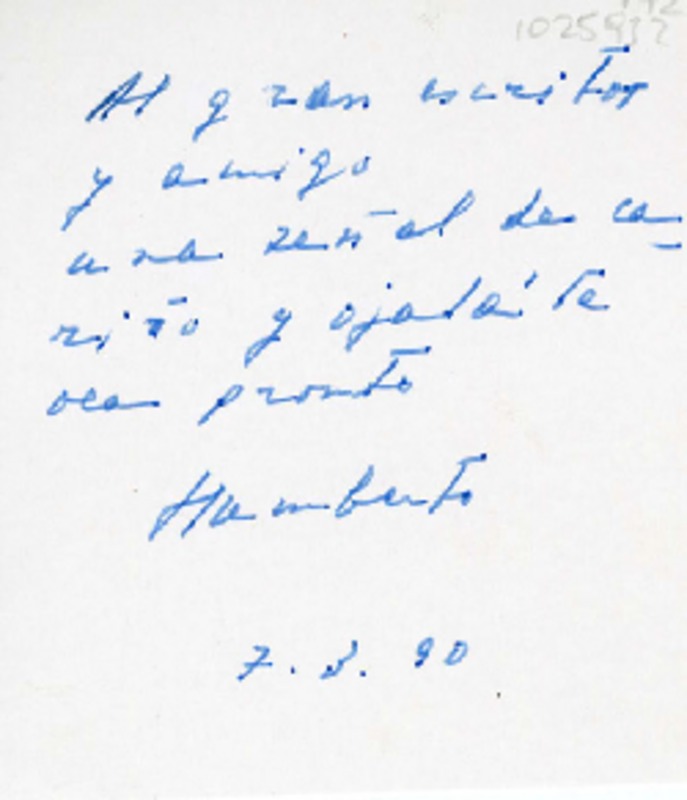 1025932
Al gran escritor
y amigo
una señal de ca-
riño y ojalá te
vea pronto
Humberto
7.3.90